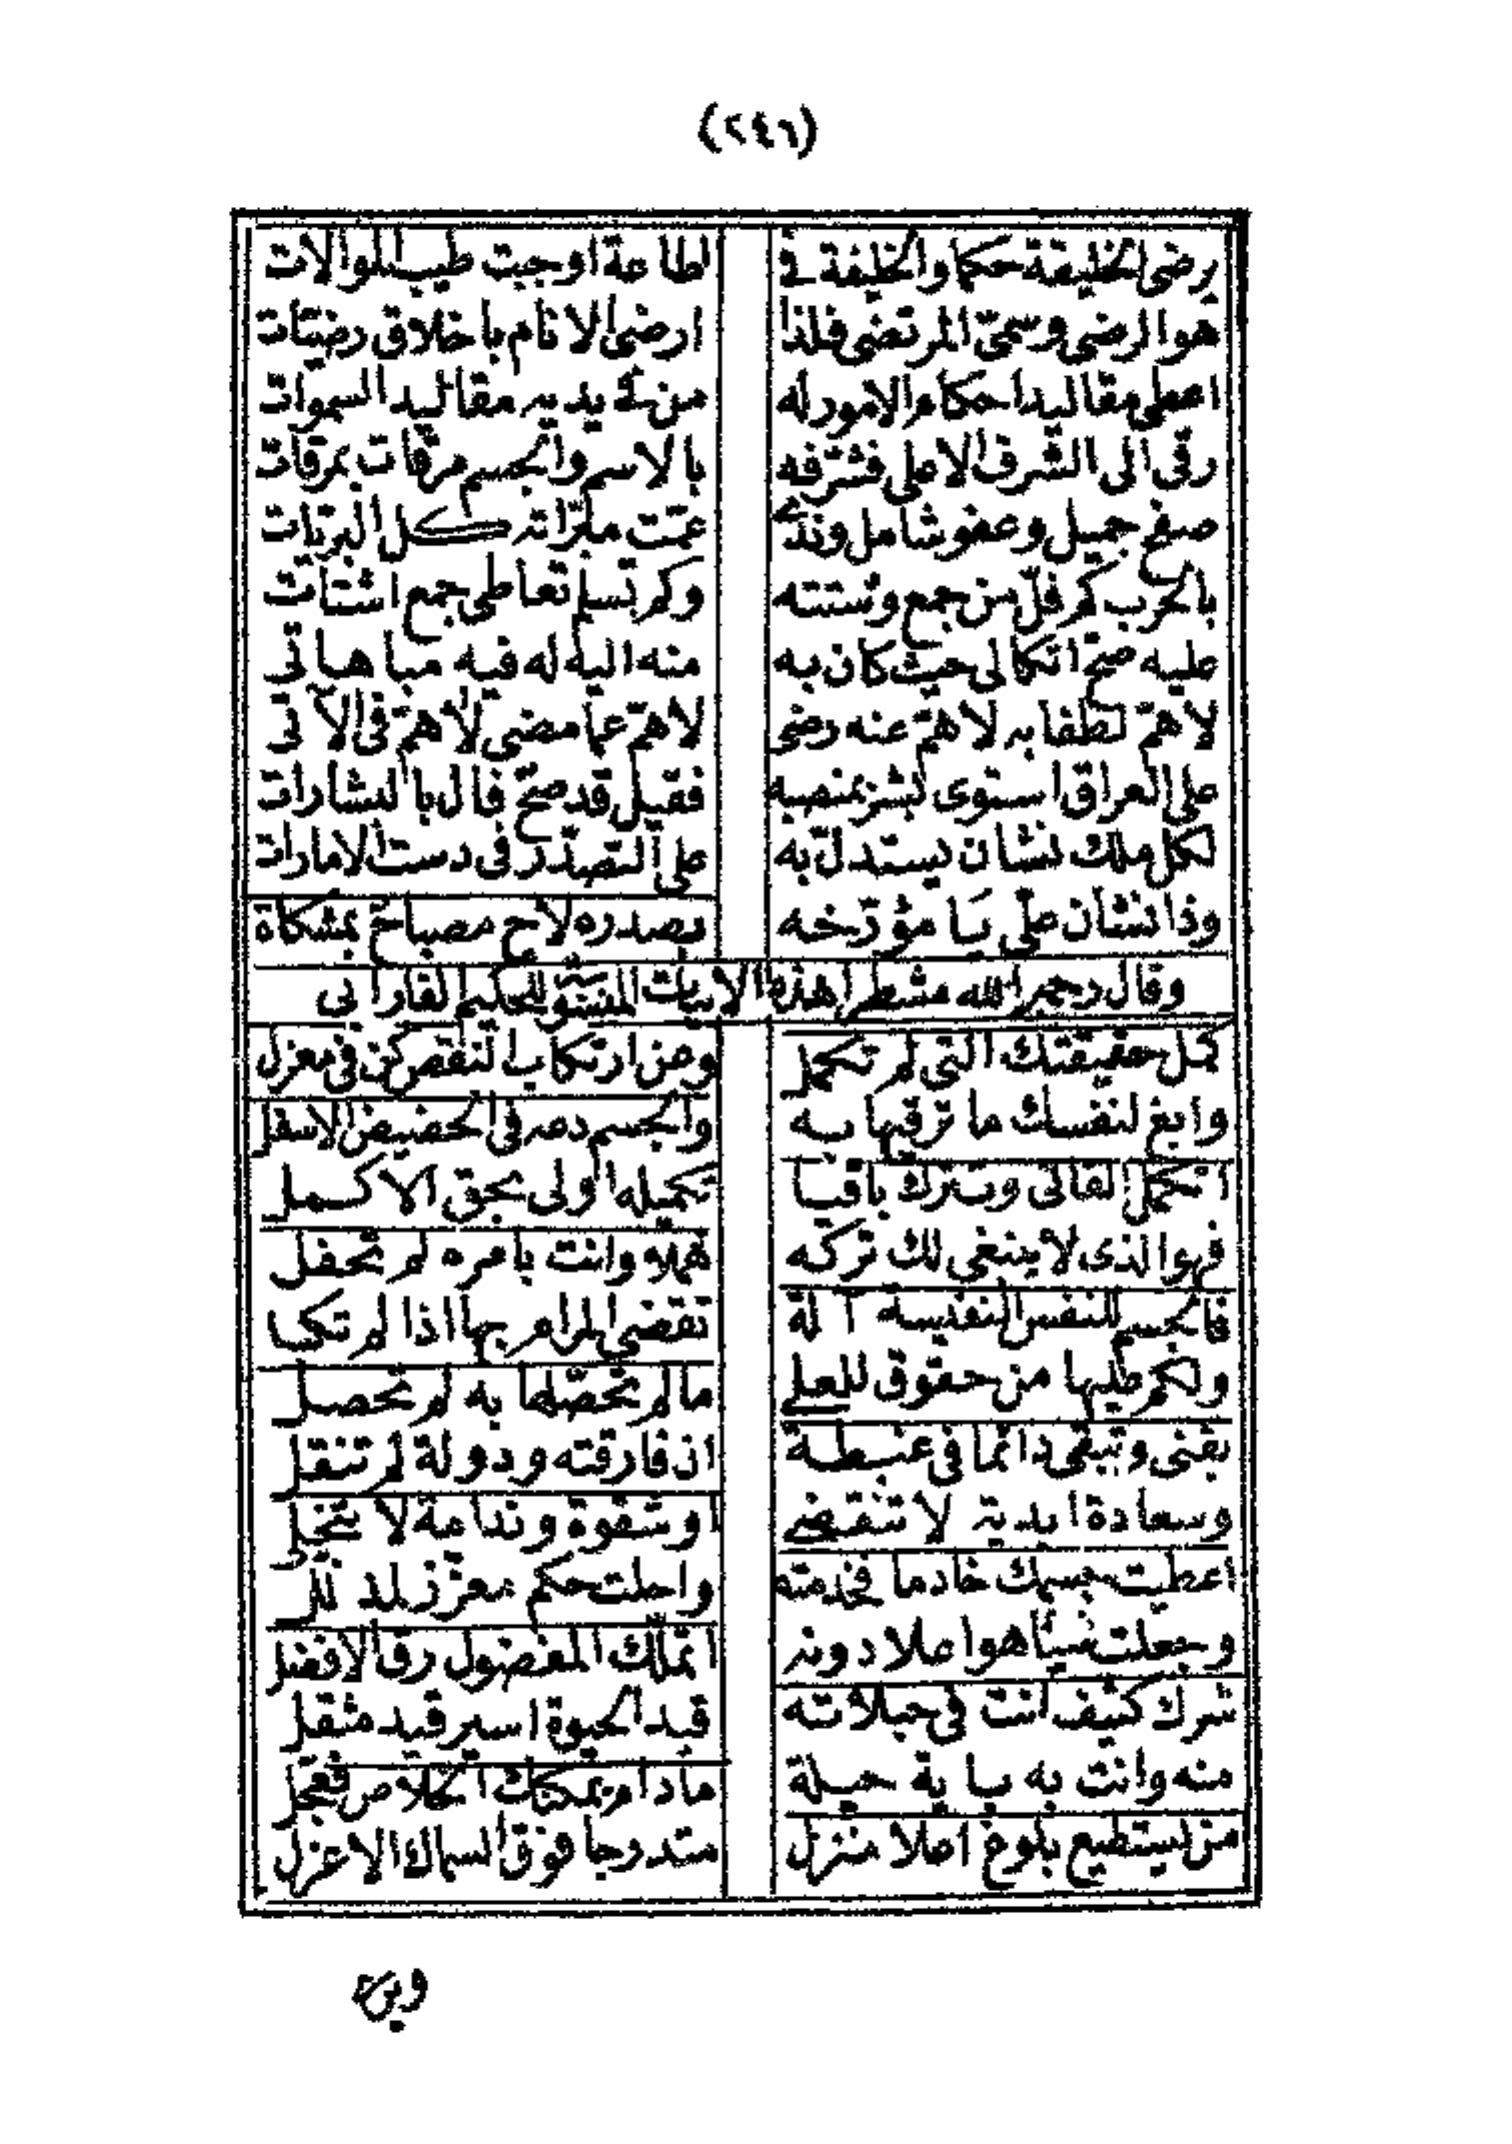 (٢٤٦)
رضى الخليقة حكما والخليفة فى لطاعة اوجبت طيب الموالات
هو الرضى وسمىّ المرتضى فلذا ارضى الانام باخلاق رضيّات
اعطى مقاليد احكام الامور له من فى يديه مقاليد السموات
رقى الى الشرف الاعلى فشرّفه بالاسم والجسم مرقات بمرقات
صفح جميل وعفو شامل وندى عمّت مبرّاته كل البريّات
بالحرب كم فلّ من جمع وشتته وكم بسلم تعاطى جمع اشتات
عليه صحّ اتكالى حيث كان به منه اليه له فيه مباهاتى
لاهمّ لطفا به لاهمّ عنه رضى لاهمّ عما مضى لاهمّ فى الآتى
على العراق استوى بشر بمنصبه فقيل قد صحّ فال بالبشارات
لكل ملك نشان يستدلّ به على التصدّر فى دست الامارات
وذا نشان علىّ يا مؤرّخه بصدره لاح مصباح بمشكاة
وقال رحمه الله مشطرا هذه الابيات المنسوبة للحكيم الفارابى
كمل حقيقتك التى لم تكمل ومن ارتكاب النقص كن فى معزل
وابغ لنفسك ما ترقيها به والجسم دعه فى الحضيض الاسفل
اتكمل الفانى وتترك باقيا تكميله اولى بحق الاكمل
فهو الذى لا ينبغى لك تركه هملا وانت بامره لم تحفل
فالجسم للنفس النفيسة آلة تقضى المرام بها اذا لم تكسل
ولكم عليها من حقوق للعلى مالم تحصّلها به لم تحصل
يفنى وتبقى دائما فى غبطة ان فارقته ودولة لم تنقل
وسعادة ابدية لا تنقضى او شقوة وندامة لا تنجلى
اعطيت جسمك خادما فخدمته واحلت حكم معزز لمذلل
وجعلت شيئا هو اعلا دونه اتملك المفضول رق الافضل
شرك كثيف انت فى حبلاته قيد الحيوة اسير قيد مثقل
منه وانت به باية حيلة مادام يمكنك الخلاص فعجل
من يستطيع بلوغ اعلا منزل متدرجا فوق السماك الاعزل